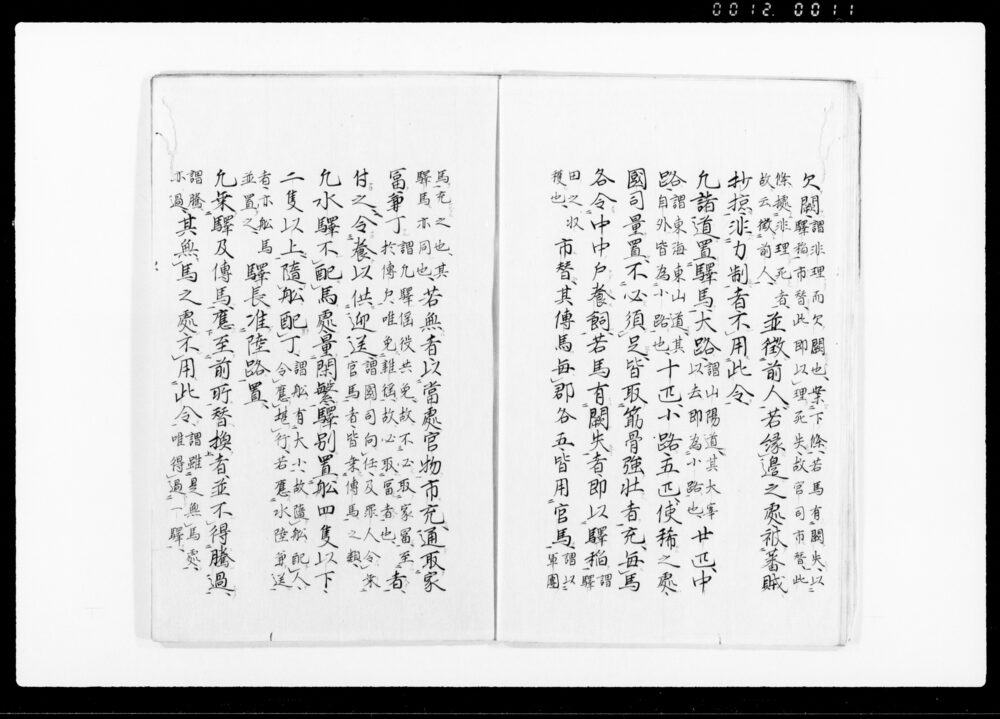 0012. 0011
欠闕謂非理而欠闕也案下條若馬有闕失以驛稻市替此即以理死失故官司市替此
條據非理死者故云徴前人並徴前人若緣邊之處被蕃賊
抄掠非力制者不用此令
凡諸道置驛馬大路謂山陽道其大宰以去即為小路也廿匹中
路謂東海東山道其自外皆為小路也十匹小路五匹使稀之處
國司量置不必須足皆取筋骨強壯者充每馬
各令中中戶養飼若馬有闕失者即以驛稻謂驛
田之収穫也市替其傳馬每郡各五皆用官馬謂以軍團
馬充之也其驛馬亦同也若無者以當處官物市充通取家
富兼丁謂凡驛徭役共免故不必取家富至於傳欠唯免雜徭故必取富者也者
付之令養以供迎送謂國司向任及罪人令乘官馬者皆乘傳馬之類
凡水驛不配馬處量閑繁驛別置舩四隻以下
二隻以上隨舩配丁謂舩有大小故隨舩配人令應堪行若應水陸兼送
者亦舩馬並置之驛長准陸路置
凡乘驛及傳馬應至前所替換者並不得騰過
謂騰亦過其無馬之處不用此令謂雖是無馬處唯得過一驛